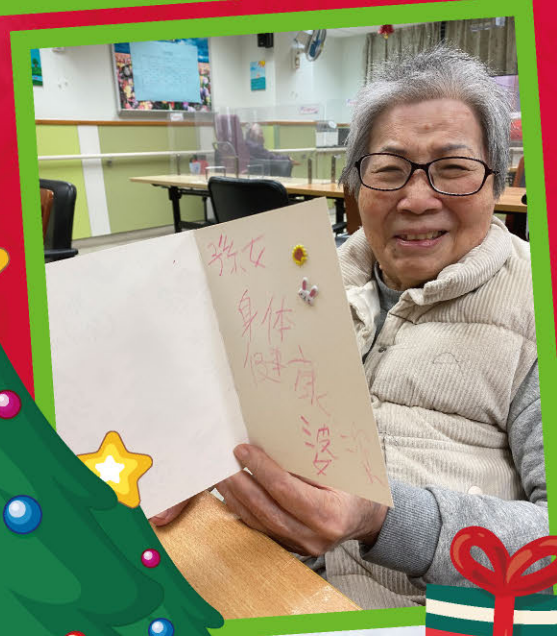 孫女
身体
健康
婆婆